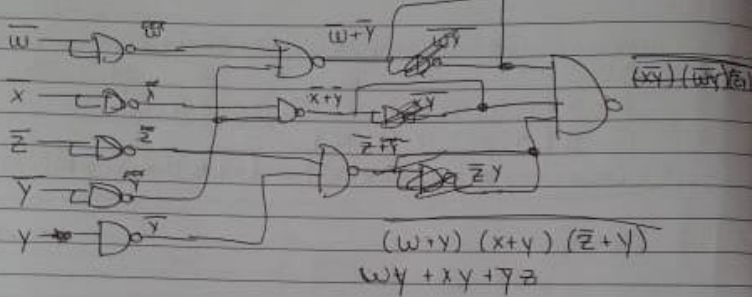 w̅ w̅ w̅+y̅
x̅ x̅ x̅+y̅ xy
z̅ z̅ z̅+y̅ z̅y
y̅ y̅
y y̅
(x̅y̅) (w̅y̅)
(w+y) (x+y) (z̅+y)
wy + xy + y̅z